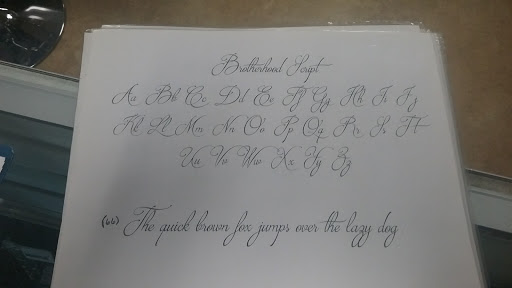 Brotherhood Script
Aa Bb Cc Dd Ee Ff Gg Hh Ii Jj
Kk Ll Mm Nn Oo Pp Qq Rr Ss Tt
Uu Vv Ww Xx Yy Zz
(66) The quick brown fox jumps over the lazy dog